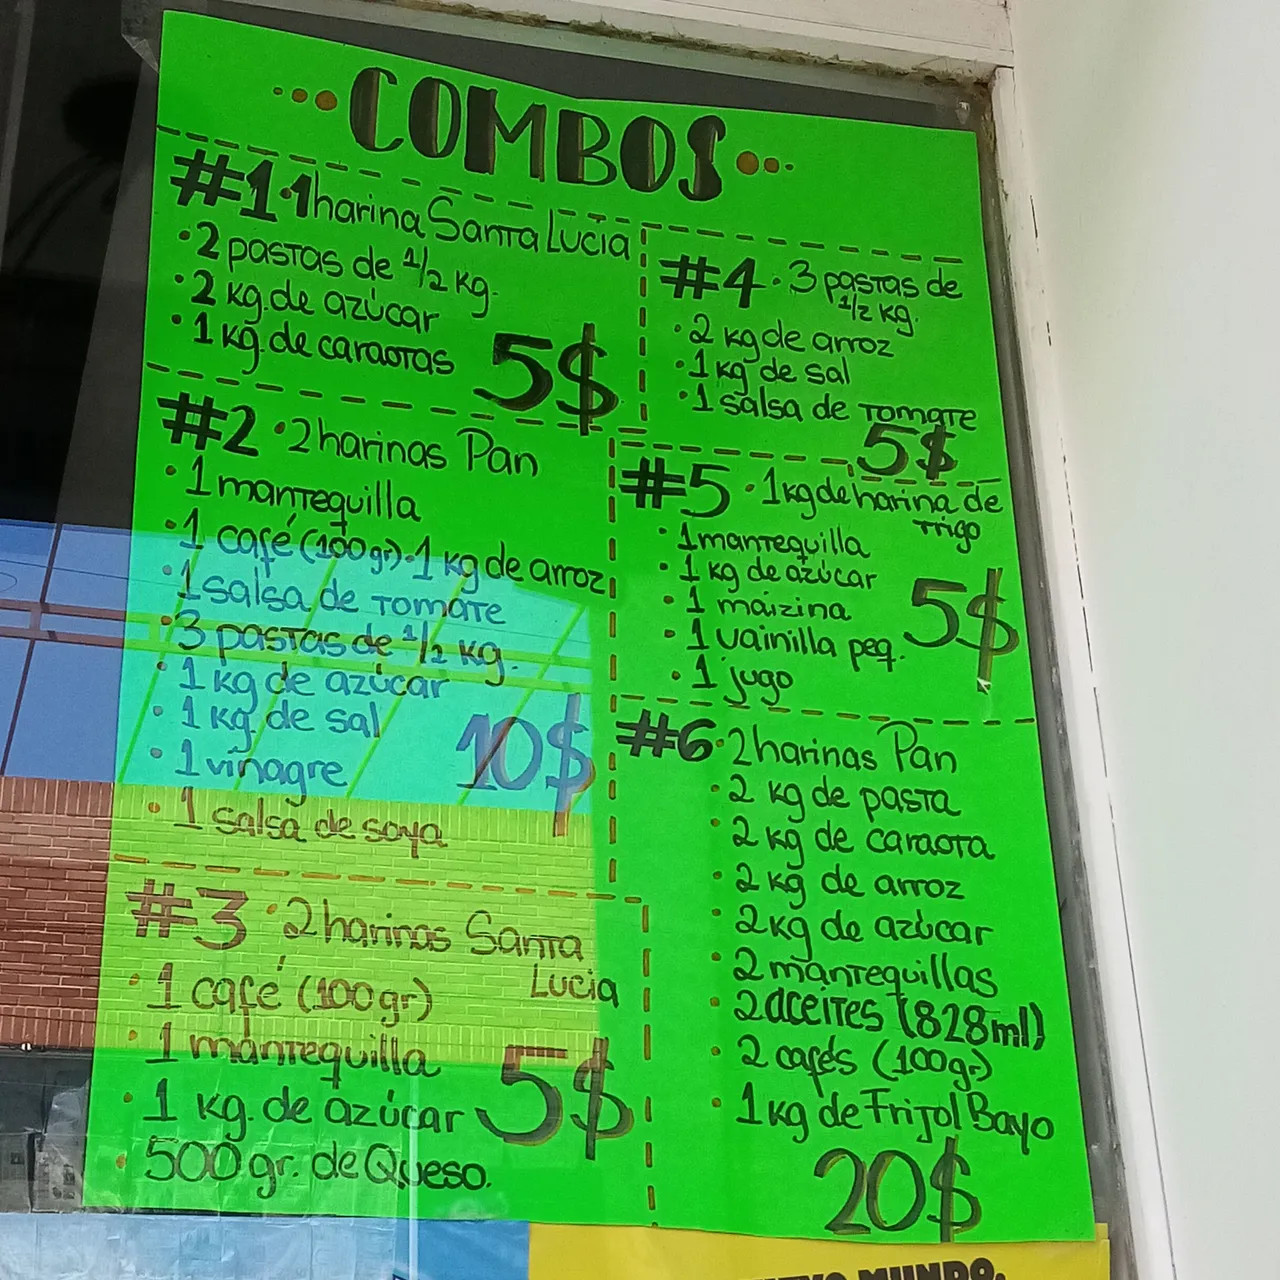 COMBOS
#1 · 1 harina Santa Lucia
· 2 pastas de 1/2 kg.
· 2 kg. de azúcar
· 1 kg. de caraotas
5$
#2 · 2 harinas Pan
· 1 mantequilla
· 1 café (100gr) · 1 kg de arroz
· 1 salsa de tomate
· 3 pastas de 1/2 kg.
· 1 kg de azúcar
· 1 kg de sal
· 1 vinagre
10$
· 1 salsa de soya
#3 · 2 harinas Santa
Lucia
· 1 café (100gr)
· 1 mantequilla
· 1 kg. de azúcar
5$
· 500gr. de Queso.
#4 · 3 pastas de
1/2 kg.
· 2 kg de arroz
· 1 kg de sal
· 1 salsa de tomate
5$
#5 · 1 kg de harina de
trigo
· 1 mantequilla
· 1 kg de azúcar
· 1 maizina
· 1 vainilla peq.
· 1 jugo
5$
#6 · 2 harinas Pan
· 2 kg de pasta
· 2 kg de caraota
· 2 kg de arroz
· 2 kg de azúcar
· 2 mantequillas
· 2 aceites (828ml)
· 2 cafés (100gr)
· 1 kg de Frijol Bayo
20$
MUNDO.